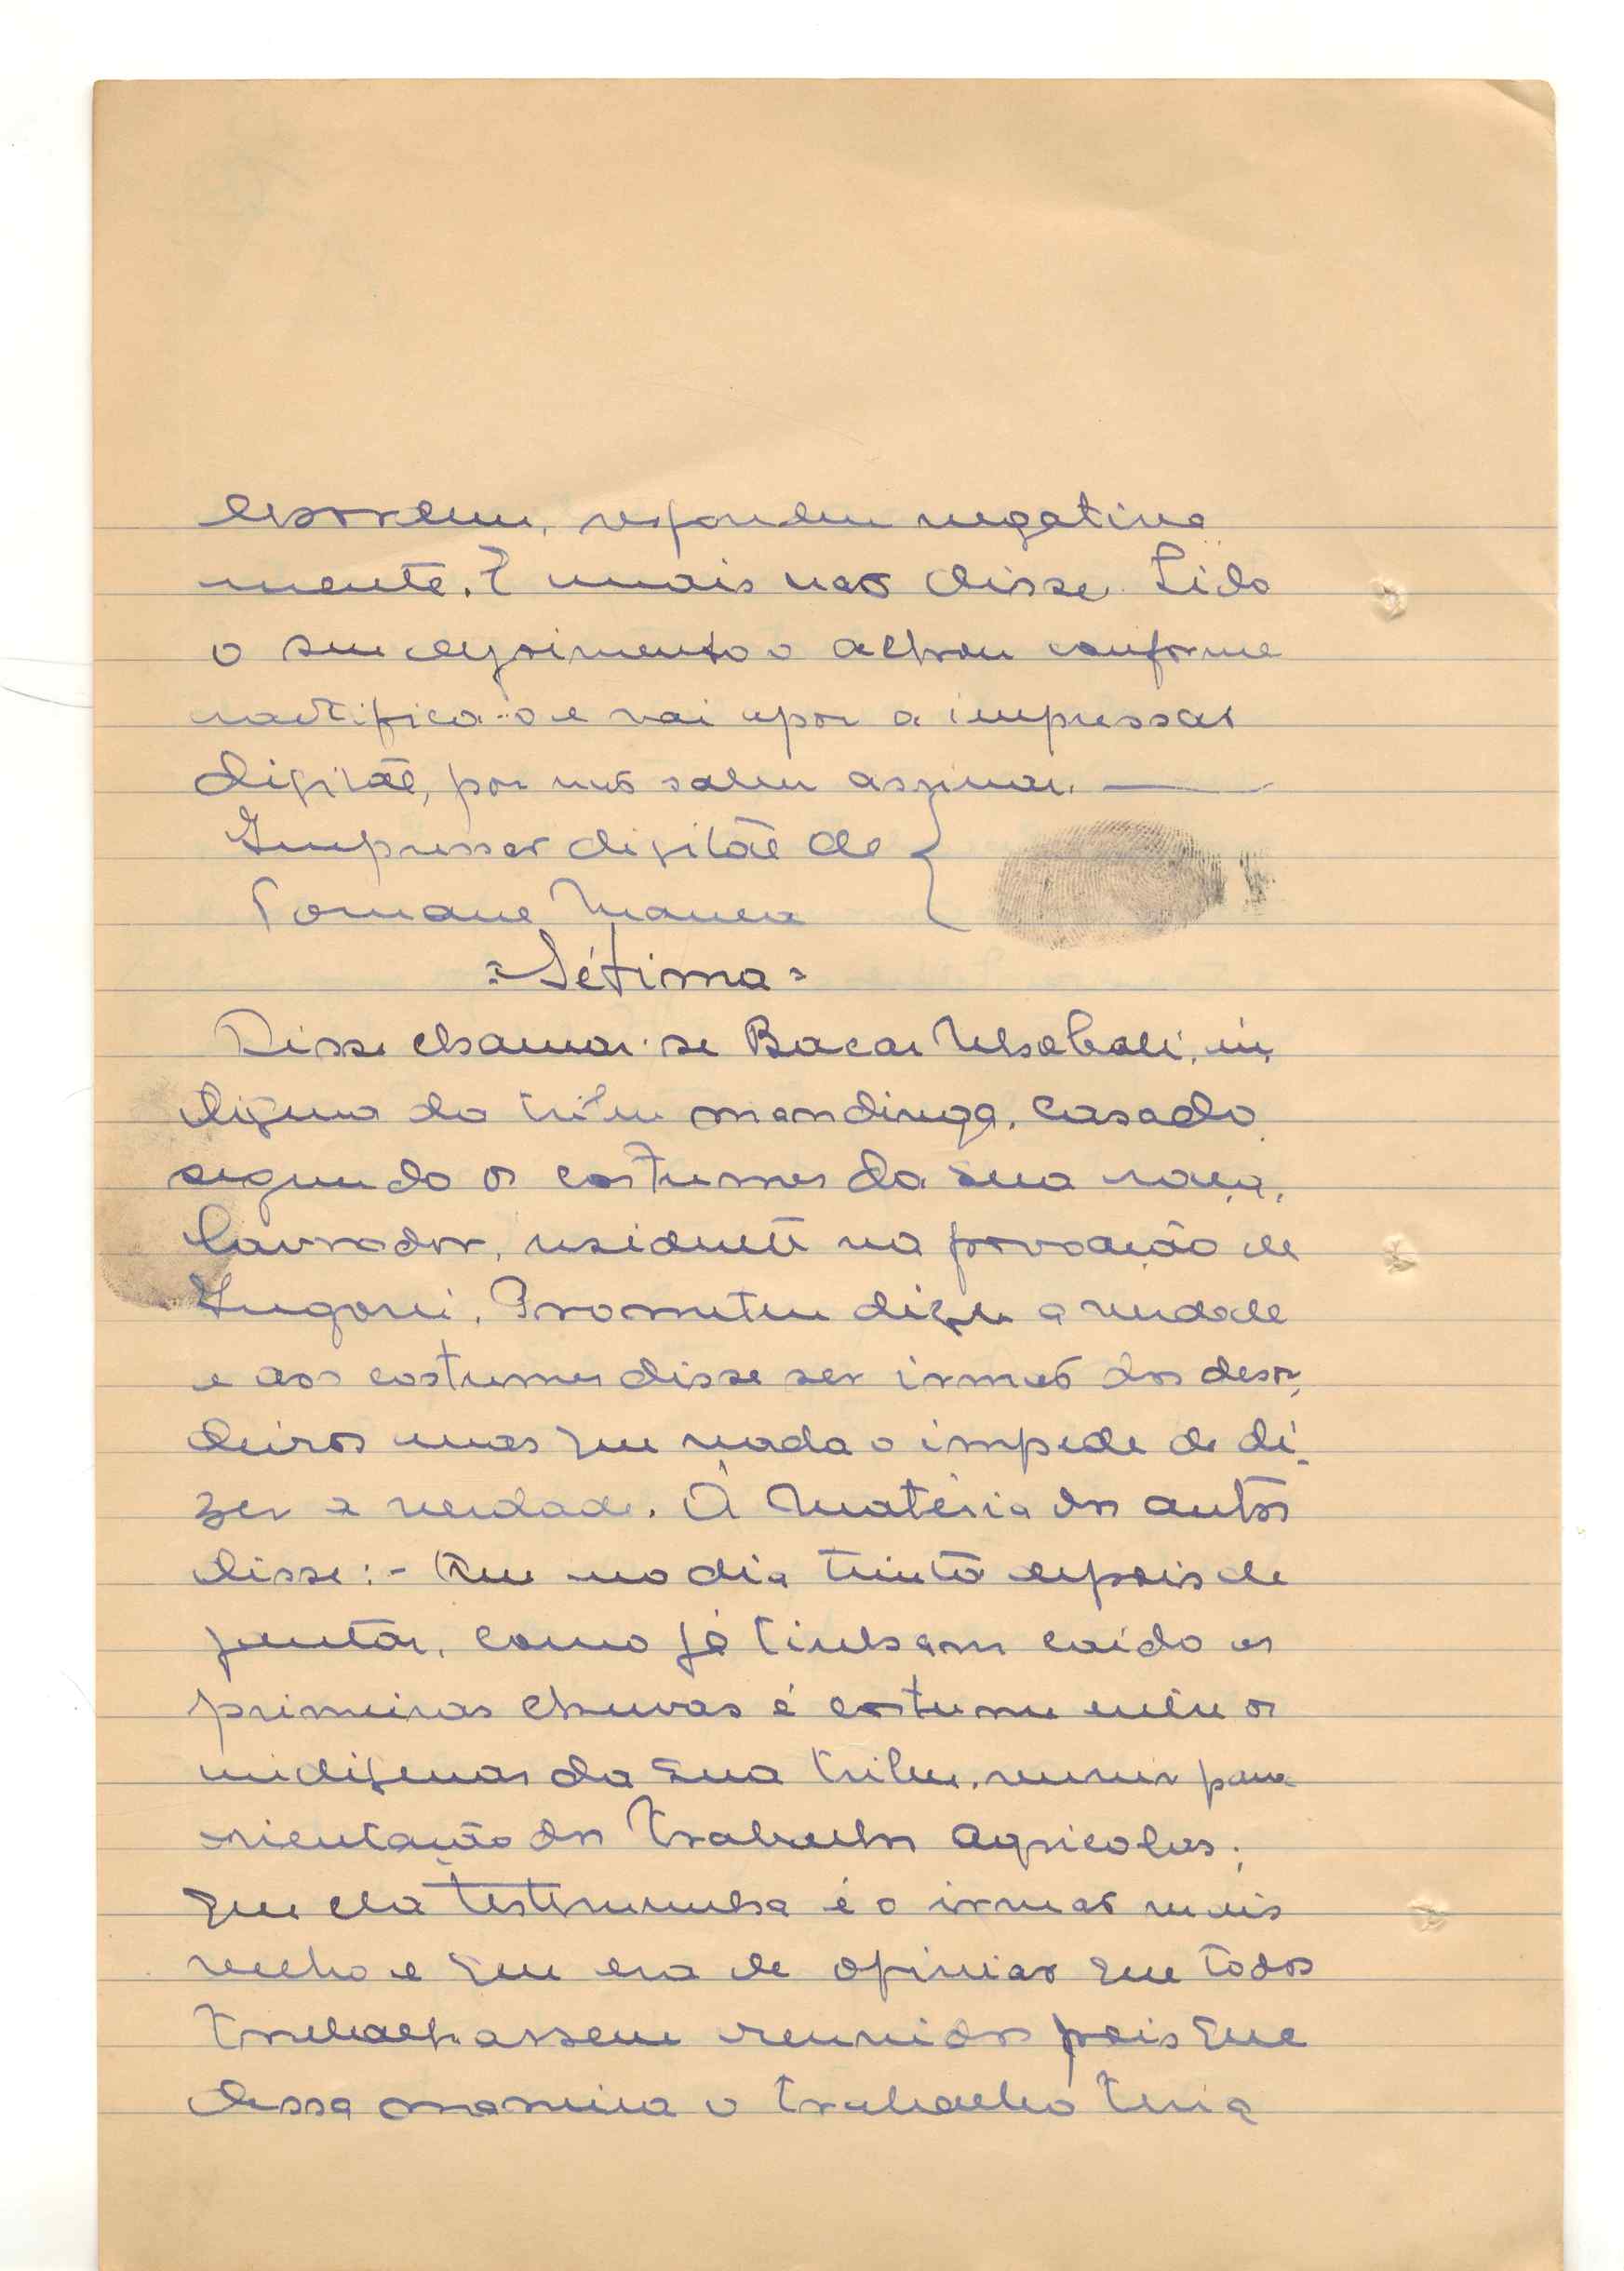 desordem, respondeu negativa
mente. E mais não disse. Lido
o seu depoimento o achou conforme
ractifica-o e vai apor a impressão
digital, por não saber assinar. —
Impressão digital de
Mané
=Sétima=
Disse chamar-se Bacar, in
digena da tribu mandinga, casado
segundo os costumes da sua raça,
lavrador, residente na povoação de
Prometeu dizer a verdade
e aos costumes disse ser irmão dos desor
deiros mas que nada o impede de di-
zer a verdade. Á matéria dos autos
disse:- Que no dia trinta depois de
jantar, como já tinham caído as
primeiras chuvas é costume entre os
indigenas da sua tribu, reunir para
orientação dos trabalhos agricolas;
Que ela testemunha é o irmão mais
velho e que era de opinião que todos
trabalhassem reunidos pois que
dessa maneira o trabalho teria